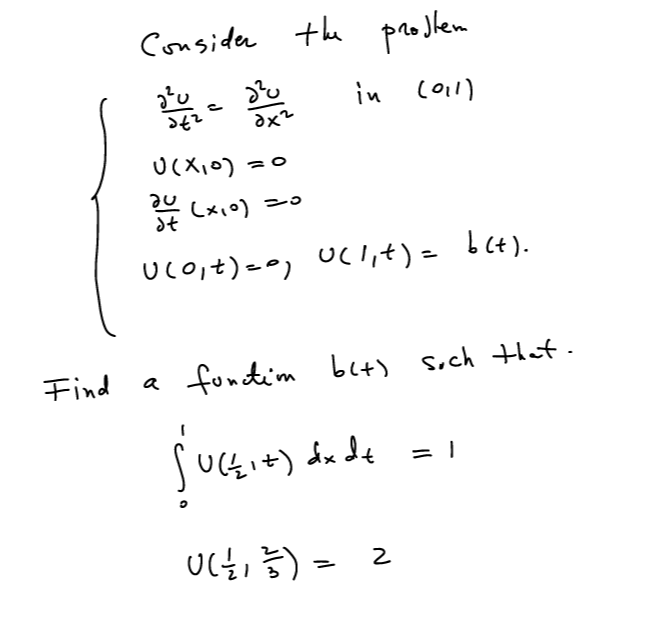 Consider the problem
∂²U/∂t² = ∂²U/∂x² in (0,1)
U(x,0) = 0
∂U/∂t (x,0) = 0
U(0,t) = 0, U(1,t) = b(t).
Find a function b(t) such that.
∫₀¹ U(1/2,t) dx dt = 1
U(1/2, 2/3) = 2